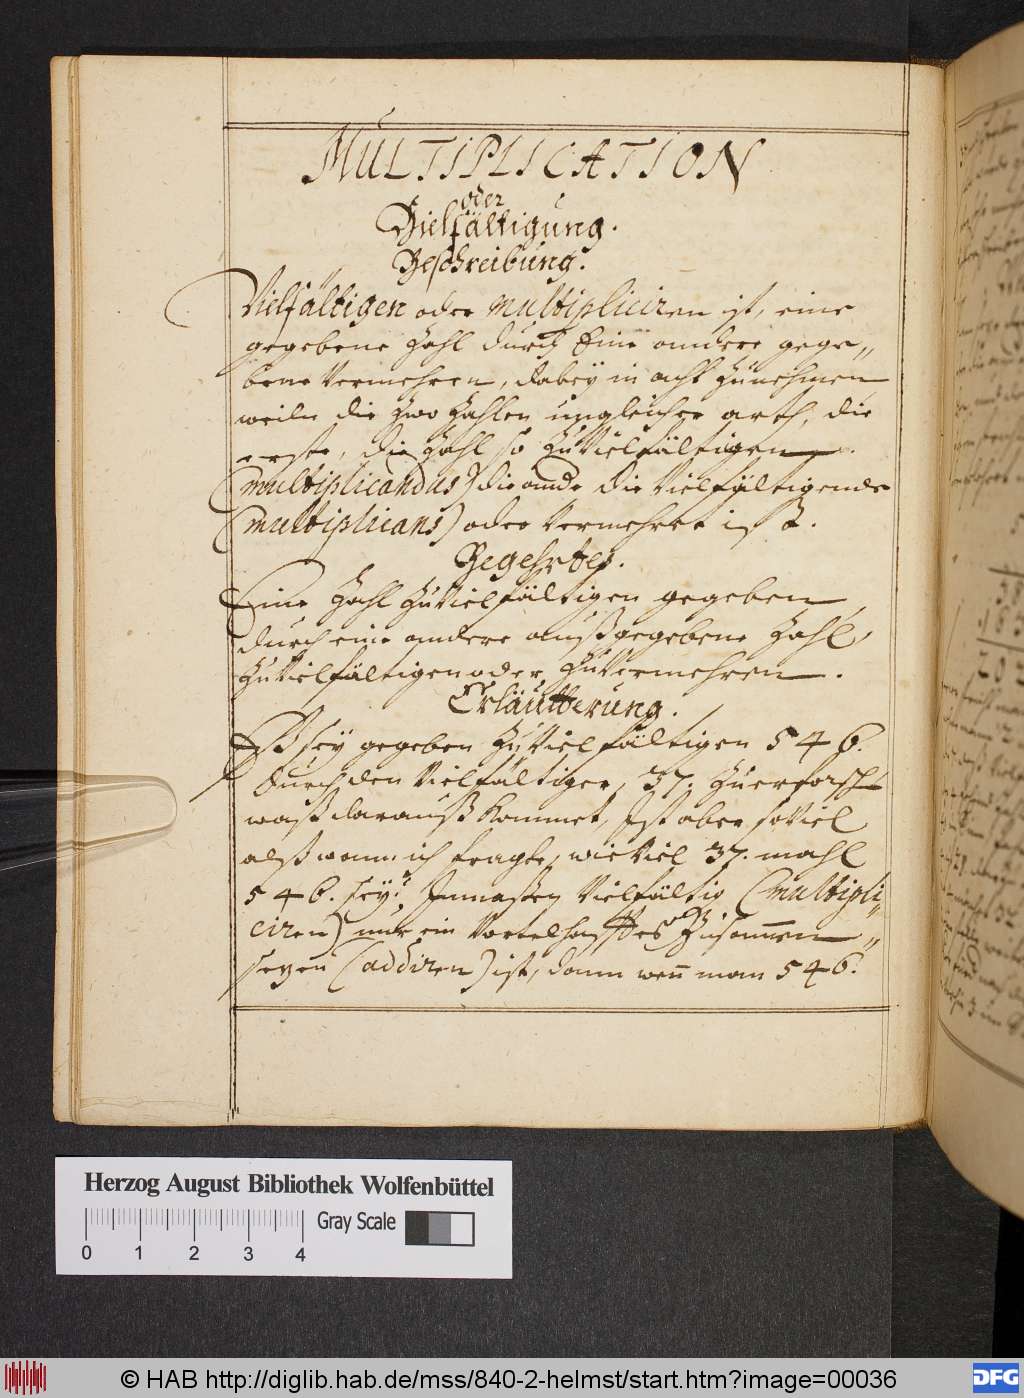 MULTIPLICATION
oder
Vielfältigung.
Beschreibung.
Vielfältigen oder multipliciren ist, eine
gegebene Zahl durch Eine andere gege„
bene vermehren, dabey in acht zunehmen
weiln die zwo Zahlen ungleicher arth, die
erste, die Zahl so zuvielfältigen
(multiplicandus) die ande die vielfältigende
(multiplicans) oder vermehrer ist.
Begehrtes.
Eine Zahl zuvielfältigen gegeben,
durch eine andere außgegebene Zahl,
zuvielfältigen oder zuvermehren.
Erläutterung.
Eß sey gegeben zuvielfältigen 546.
durch den Vielfältiger, 37. zuerforsch
waß darauß kommet, Ist aber soviel
alß wann ich fragte, wieviel 37. mahl
546. sey? Inmaßen Vielfältig (multipli„
ciren) nur ein Vortelhafftes Zusammen„
sezen (addiren) ist, dann wen̄ man 546.
Herzog August Bibliothek Wolfenbüttel
0 1 2 3 4
Gray Scale
© HAB http://diglib.hab.de/mss/840-2-helmst/start.htm?image=00036
DFG